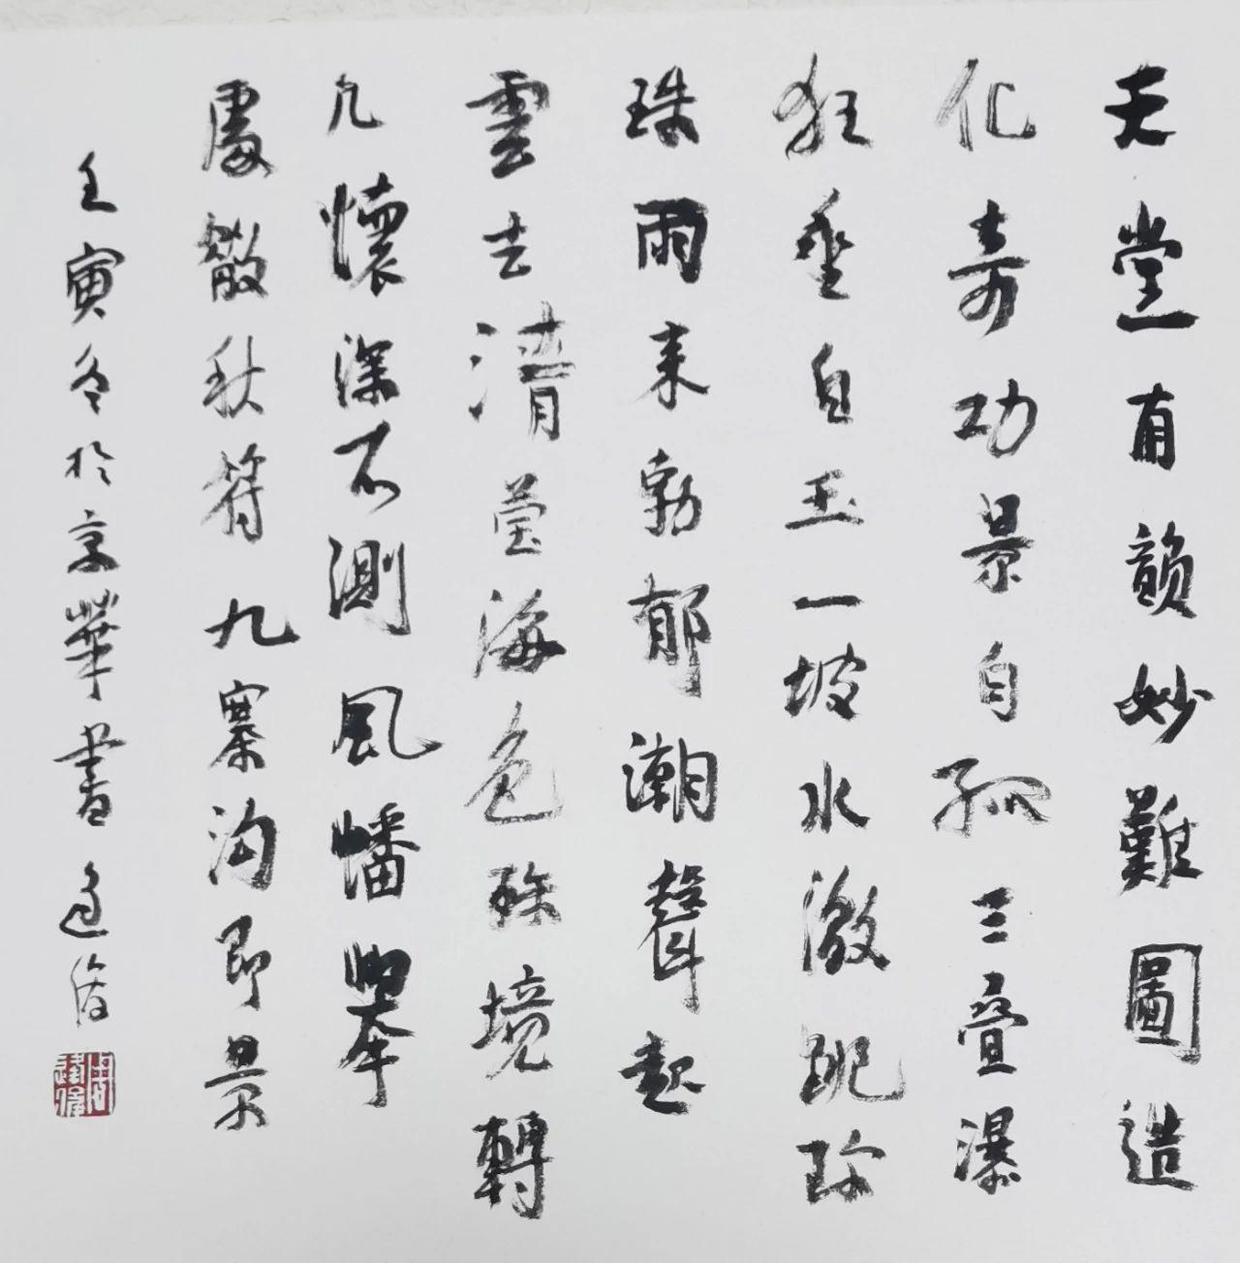 天堂有韻妙難圖造
化奇功景自孤三疊瀑
狂垂自玉一坡水激跳珍
珠雨来勃郁潮聲起
雲去清瑩海色殊境轉
凡懷深不測風幡舉
處散秋符九寨沟即景
壬寅冬於京華書